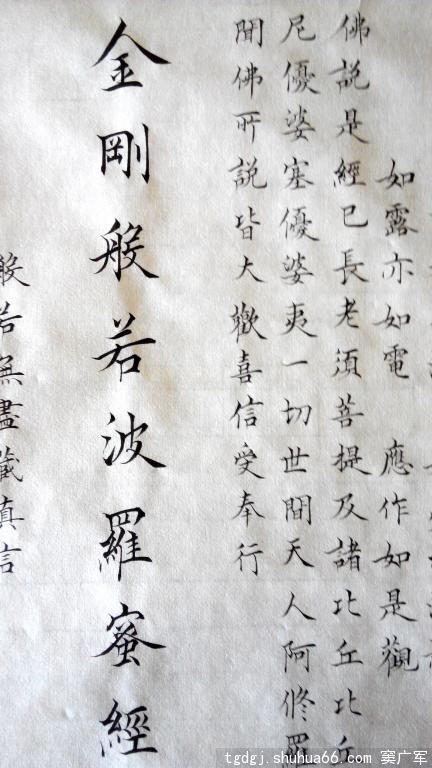 如露亦如電 應作如是觀
佛説是經已長老須菩提及諸比丘比丘
尼優婆塞優婆夷一切世間天人阿修羅
聞佛所説皆大歡喜信受奉行
金剛般若波羅蜜經
般若無盡藏真言
tgdgj.shuhua66.com 窦广军